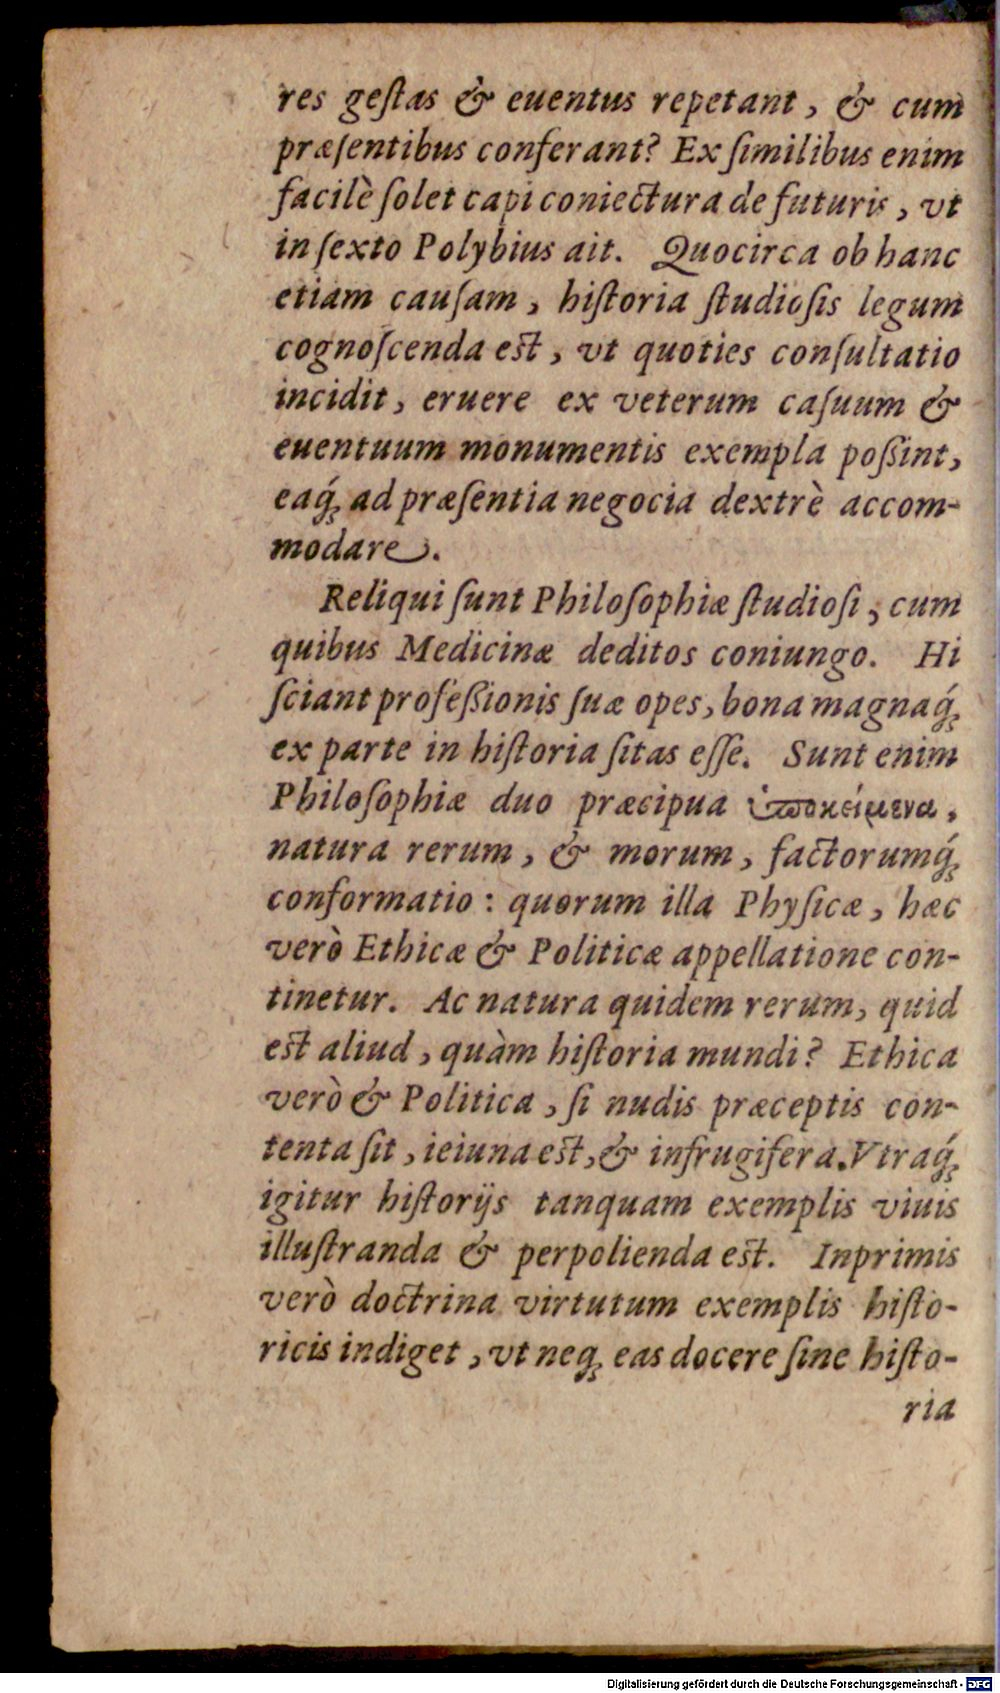 res geſtas & euentus repetant, & cum
præſentibus conferant? Ex ſimilibus enim
facilè ſolet capi coniectura de futuris, vt
in ſexto Polybius ait. Quocirca ob hanc
etiam cauſam, hiſtoria ſtudioſis legum
cognoſcenda est, vt quoties conſultatio
incidit, eruere ex veterum caſuum &
euentuum monumentis exempla poßint,
eaq́ꝫ ad præſentia negocia dextrè accom-
modare.
Reliqui ſunt Philoſophiæ ſtudioſi, cum
quibus Medicinæ deditos coniungo. Hi
ſciant profeßionis ſuæ opes, bona magnaq́ꝫ
ex parte in hiſtoria ſitas eſſe. Sunt enim
Philoſophiæ duo præcipua ὑποκείμενα,
natura rerum, & morum, factorumq́ꝫ
conformatio: quorum illa Phyſicæ, hæc
verò Ethicæ & Politicæ appellatione con-
tinetur. Ac natura quidem rerum, quid
est aliud, quàm hiſtoria mundi? Ethica
verò & Politica, ſi nudis præceptis con-
tenta ſit, ieiuna est, & infrugifera. Vtraq́ꝫ
igitur hiſtorijs tanquam exemplis viuis
illuſtranda & perpolienda est. Inprimis
verò doctrina virtutum exemplis hiſto-
ricis indiget, vt neqꝫ eas docere ſine hiſto-
ria
Digitalisierung gefördert durch die Deutsche Forschungsgemeinschaft - DFG